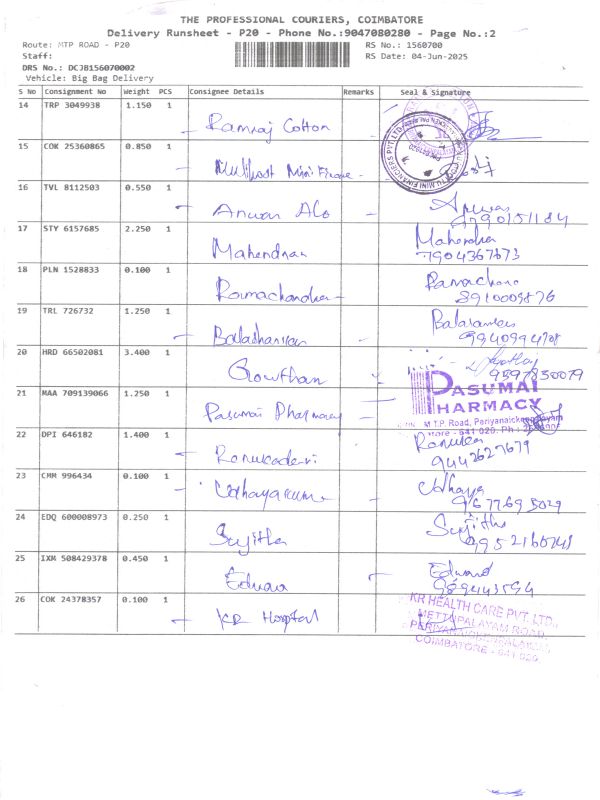 THE PROFESSIONAL COURIERS, COIMBATORE
Delivery Runsheet - P20 - Phone No.:9047080280 - Page No.:2
Route: MTP ROAD - P20 RS No.: 1560700
Staff: RS Date: 04-Jun-2025
DRS No.: DCJB156070002
Vehicle: Big Bag Delivery
S No Consignment No Weight PCS Consignee Details Remarks Seal & Signature
14 TRP 3049938 1.150 1
Ramraj Cotton
15 COK 25360865 0.850 1
Mini
16 TVL 8112503 0.550 1
Anwar
17 STY 6157685 2.250 1
Mahendran Mahendra
7904367673
18 PLN 1528833 0.100 1
Ramachandran
8910009876
19 TRL 726732 1.250 1
20 HRD 66502081 3.400 1
Gowthan
9597850079
21 MAA 709139066 1.250 1
Pasumai Pharmacy
PASUMAI
PHARMACY
M.T.P. Road, Periyanaickenpalayam
22 DPI 646182 1.400 1
Renukadevi Renuka
9442627679
23 CMM 996434 0.100 1
Udhayakumar Udhaya
9677695029
24 EDQ 600008973 0.250 1
Sujitha Sujitha
25 IXM 508429378 0.450 1
Edward Edward
26 COK 24378357 0.100 1
KR Hospital
KR HEALTH CARE PVT. LTD.,
METTUPALAYAM ROAD,
PERIYANAICKENPALAYAM,
COIMBATORE - 641 020.